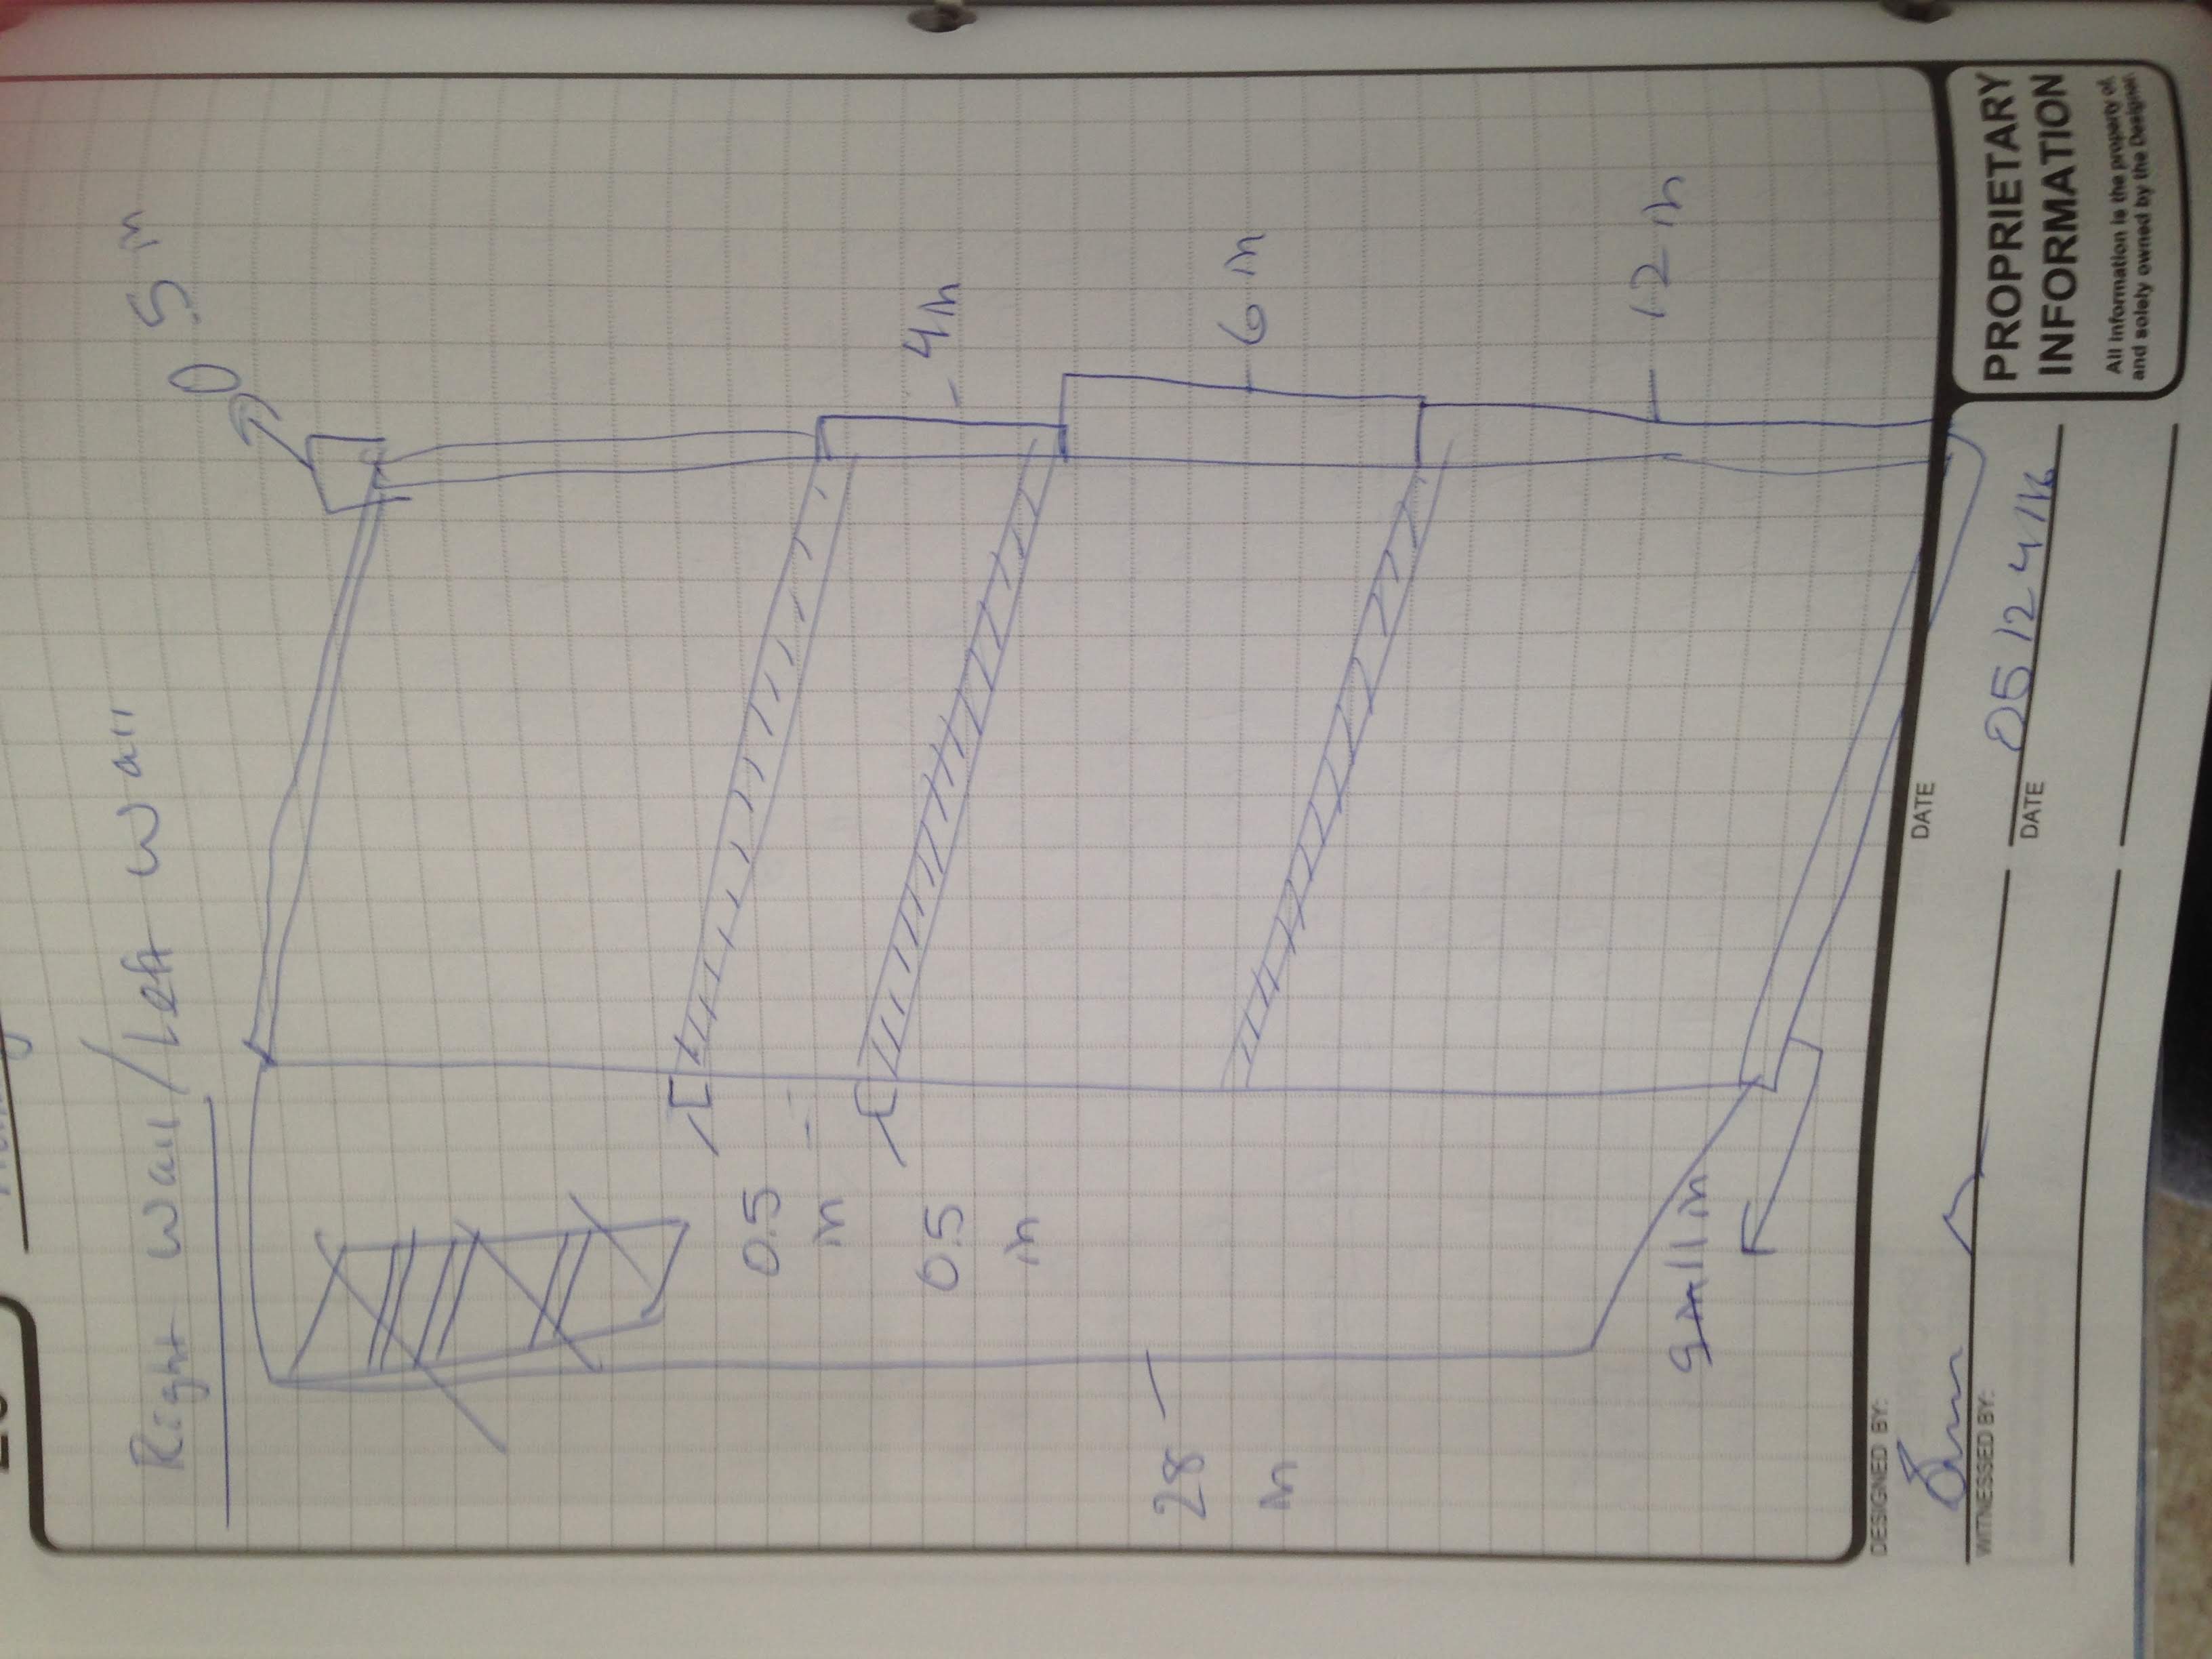 Right Wall/Left Wall
0.5 in
0.5
in
0.5
in
4in
28
in
6 in
12 in
11 in
DESIGNED BY:
DATE
05/24/16
WITNESSED BY:
DATE
PROPRIETARY
INFORMATION
All information is the property of,
and solely owned by the Designer.